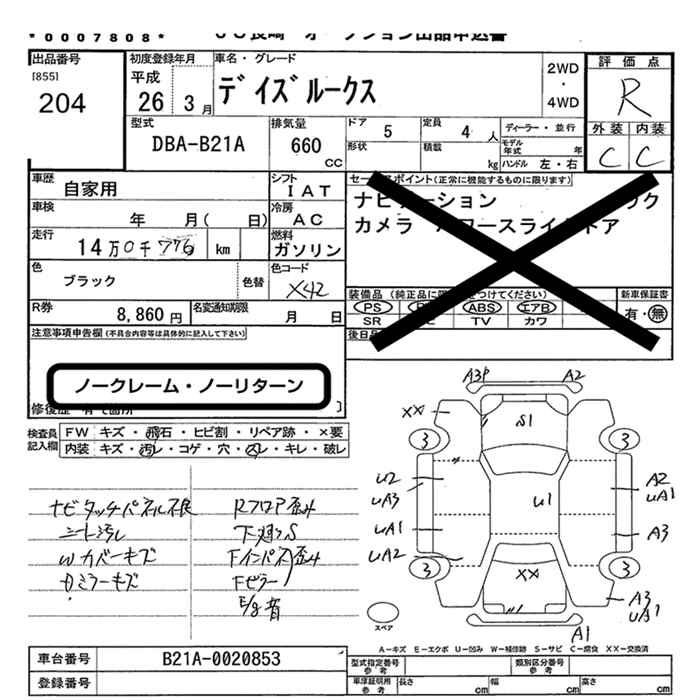 *0007808*
出品番号
[855]
204
初度登録年月
平成
26 3月
車名・グレード
デイズルークス
2WD
・
4WD
評価点
R
外装 内装
C C
型式
DBA-B21A
排気量
660
CC
ドア 5
定員 4 人
ディーラー・並行
形状
積載 kg
モデル年式 年
ハンドル 左・右
車歴
自家用
シフト
IAT
車検
年 月( 日)
冷房
AC
走行
14万0千776 km
燃料
ガソリン
色
ブラック
色替
色コード
X42
R券
8,860円
名変通知期限
月 日
セールスポイント(正常に機能するものに限ります)
カメラ
装備品
PS ABS エアB
SR TV カワ
新車保証書
有・無
後日品
注意事項申告欄(不具合内容等は具体的に記入して下さい)
ノークレーム・ノーリターン
検査員記入欄
FW キズ・飛石・ヒビ割・リペア跡・×要
内装 キズ・汚レ・コゲ・穴・凹レ・キレ・破レ
ナビタッチパネル不良
シート汚レ
Wカバーキズ
ミラーキズ
Rフロア歪み
Fピラー
E/g音
A3P A2
XX S1
3 3
U2 A2
UA3 U1 UA1
UA1 A3
UA2
3 3
XX
A3
UA1
A1
スペア
A-キズ E-エクボ U-凹み W-補修跡 S-サビ C-腐食 XX-交換済
車台番号
B21A-0020853
登録番号
型式指定番号
参考
類別区分番号
参考
車庫証明用
参考
長さ cm
幅 cm
高さ cm